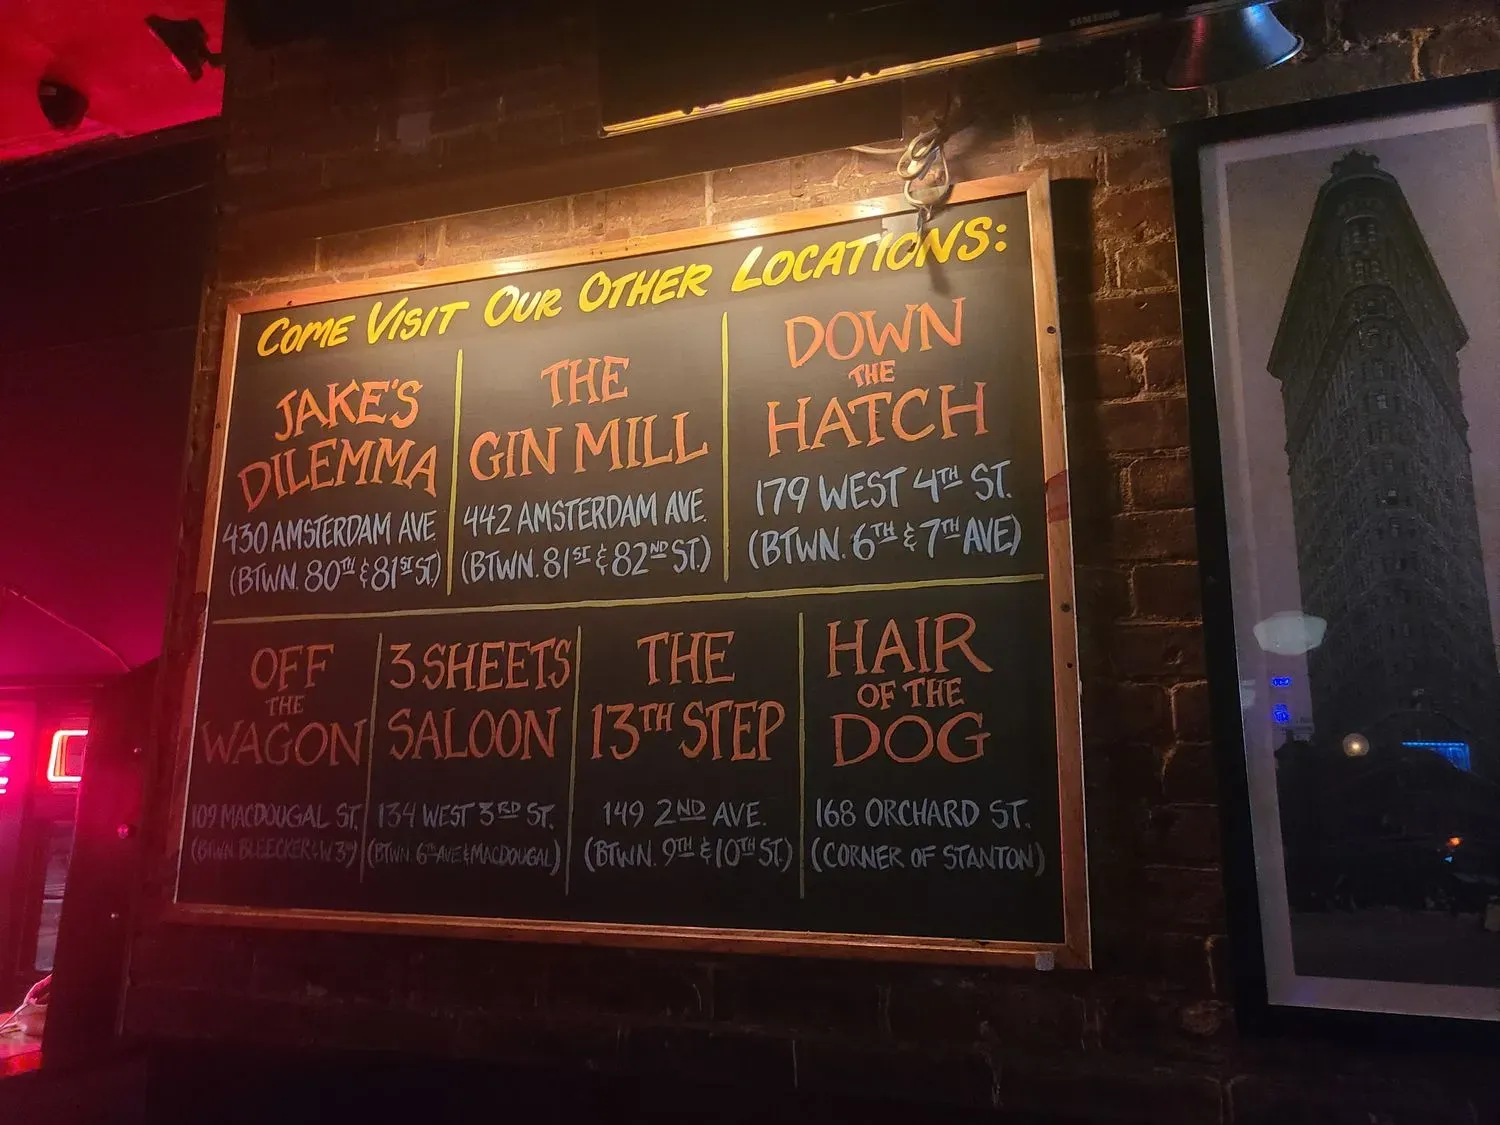 SAMSUNG
COME VISIT OUR OTHER LOCATIONS:
JAKE'S
DILEMMA
430 AMSTERDAM AVE
(BTWN. 80TH & 81ST ST.)
THE
GIN MILL
442 AMSTERDAM AVE.
(BTWN. 81ST & 82ND ST.)
DOWN
THE
HATCH
179 WEST 4TH ST.
(BTWN. 6TH & 7TH AVE)
OFF
THE
WAGON
109 MACDOUGAL ST.
(BTWN. BLEECKER & W 3RD)
3 SHEETS
SALOON
134 WEST 3RD ST.
(BTWN. 6TH AVE & MACDOUGAL)
THE
13TH STEP
149 2ND AVE.
(BTWN. 9TH & 10TH ST.)
HAIR
OF THE
DOG
168 ORCHARD ST.
(CORNER OF STANTON)